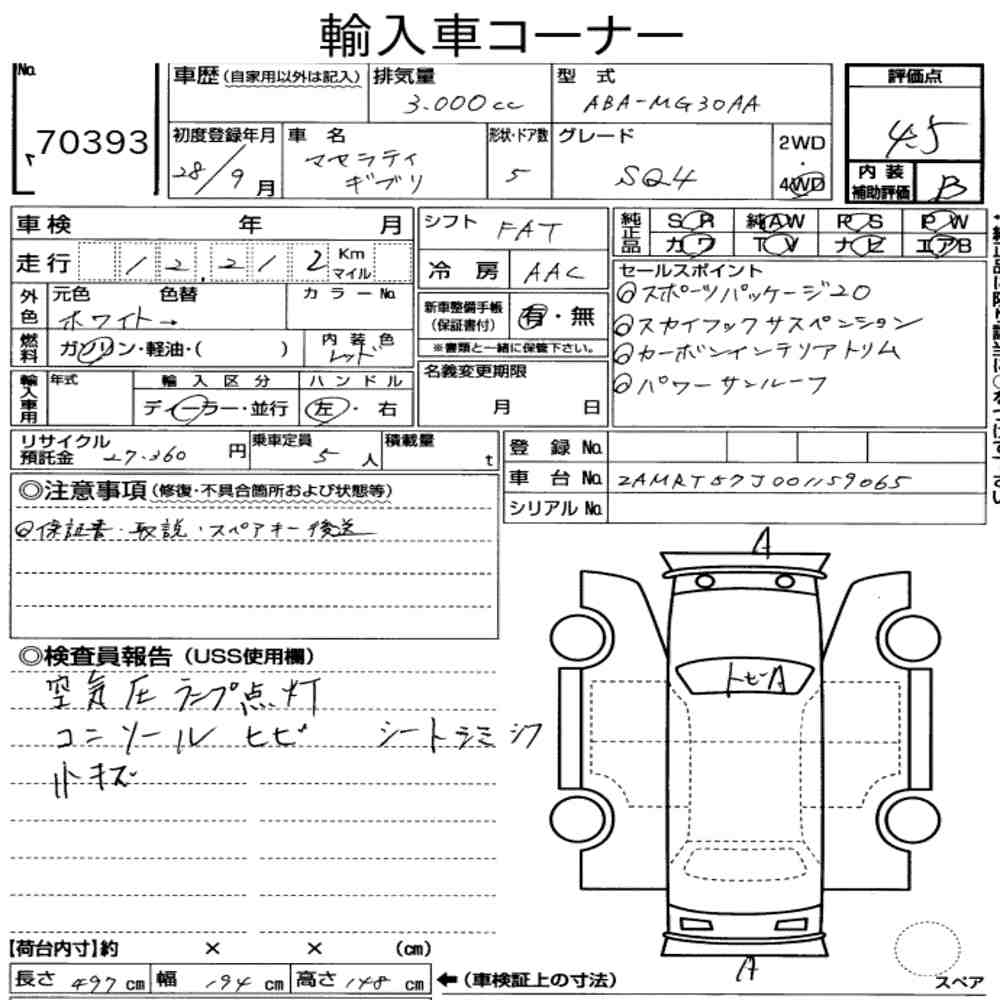 輸入車コーナー
No. 70393
車歴(自家用以外は記入) 排気量 3.000cc 型式 ABA-MG30AA 評価点 4.5
初度登録年月 28/9月 車名 マセラティ ギブリ 形状・ドア数 5 グレード SQ4 2WD 4WD 内装補助評価 B
車検 年 月 シフト FAT 純正品 SR 純AW PS PW
カワ TV ナビ エアB
走行 12.212 Km マイル 冷房 AAC セールスポイント
◎スポーツパッケージ20
外色 元色 色替 カラーNo. 新車整備手帳(保証書付) 有・無
ホワイト→ ◎スカイフックサスペンション
燃料 ガソリン・軽油・( ) 内装色 レッド ※書類と一緒に保管下さい。
◎カーボンインテリアトリム
輸入車用 年式 輸入区分 ハンドル 名義変更期限
◎パワーサンルーフ
ディーラー・並行 左・右 月 日
リサイクル預託金 27.360円 乗車定員 5人 積載量 t 登録No.
車台No. ZAMRT57J001159065
シリアルNo.
◎注意事項(修復・不具合箇所および状態等)
◎保証書・取説・スペアキー後送
A
◎検査員報告(USS使用欄)
空気圧ランプ点灯
トビA
コンソールヒビ シートラミシワ
小キズ
【荷台内寸】約 × × (cm)
A
長さ 497cm 幅 194cm 高さ 148cm ←(車検証上の寸法)
スペア